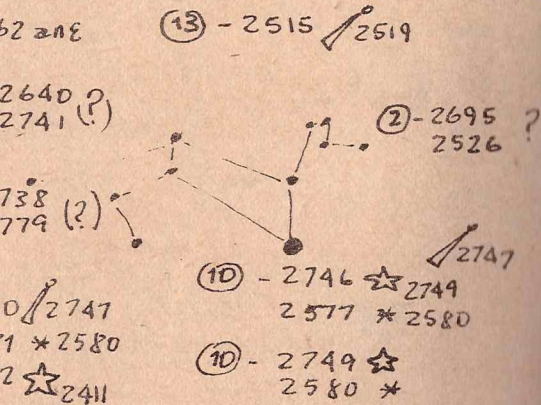 62 ans
⑬ - 2515 2519
2640 (?)
2741
② - 2695 ?
2526
738 (?)
779
2747
⑩ - 2746 ☆ 2749
2577 * 2580
0 2747
71 * 2580
2 ☆ 2411
⑩ - 2749 ☆
2580 *